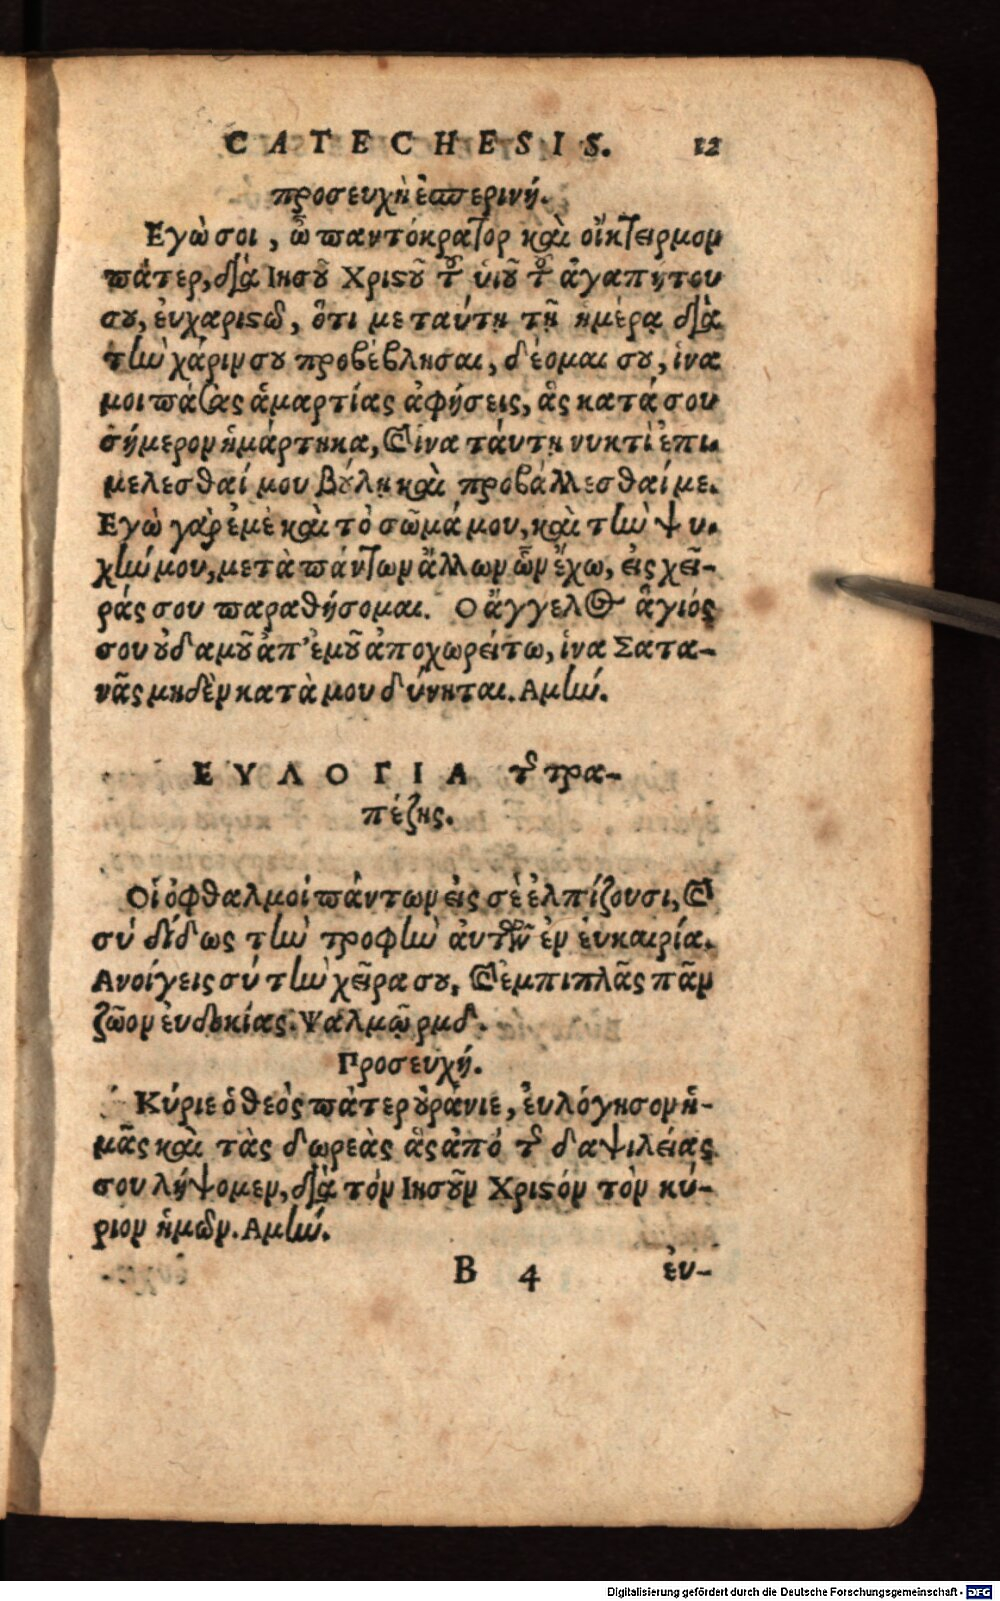 CATECHESIS. 12
προσευχὴ ἑσπερινή.
Εγὼ σοι, ὦ παντόκρατορ καὶ οἴκτειρμον
πάτερ, διὰ Ιησοῦ Χριστοῦ τοῦ ὑιοῦ τοῦ ἀγαπητου
σου, ἐυχαριστῶ, ὅτι με ταύτῃ τῇ ἡμέρᾳ διὰ
τὴν χάριν σου προβέβλησαι, δέομαι σου, ἱνα
μοι πάσας ἁμαρτίας ἀφήσεις, ἃς κατά σου
σήμερον ἡμάρτηκα, καὶ ἱνα τάυτῃ νυκτὶ ἐπι-
μελεσθαί μου βύλη καὶ προβάλλεσθαί με.
Εγὼ γὰρ ἐμὲ καὶ τὸ σῶμά μου, καὶ τὴν ψυ-
χήν μου, μετὰ πάντων ἄλλων ὧν ἔχω, εἰς χεῖ-
ράς σου παραθήσομαι. Ο ἄγγελος ἅγιός
σου ὐδαμοῦ ἀπ' ἐμοῦ ἀποχωρείτω, ἱνα Σατα-
νᾶς μηδὲν κατὰ μου δύνηται. Αμήν.
ΕΥΛΟΓΙΑ τῆς τρα-
πέζης.
Οἱ ὀφθαλμοὶ πάντων εἰς σὲ ἐλπίζουσι, καὶ
σύ δίδως τὴν τροφὴν ἀυτῶν ἐν ἐυκαιρία.
Ανοίγεις σύ τὴν χεῖρα σου, καὶ ἐμπιπλᾶς πᾶν
ζῶον ἐυδοκίας. Ψαλμῷ ρμδ.
Προσευχή.
Κύριε ὁ θεὸς πάτερ οὐράνιε, ἐυλόγησον ἡ-
μᾶς καὶ τὰς δωρεὰς ἃς ἀπό τῆς δαψιλείας
σου λήψομεν, διὰ τόν Ιησοῦν Χριστόν τὸν κύ-
ριον ἡμῶν. Αμήν.
B 4 ἐυ-
Digitalisierung gefördert durch die Deutsche Forschungsgemeinschaft - DFG